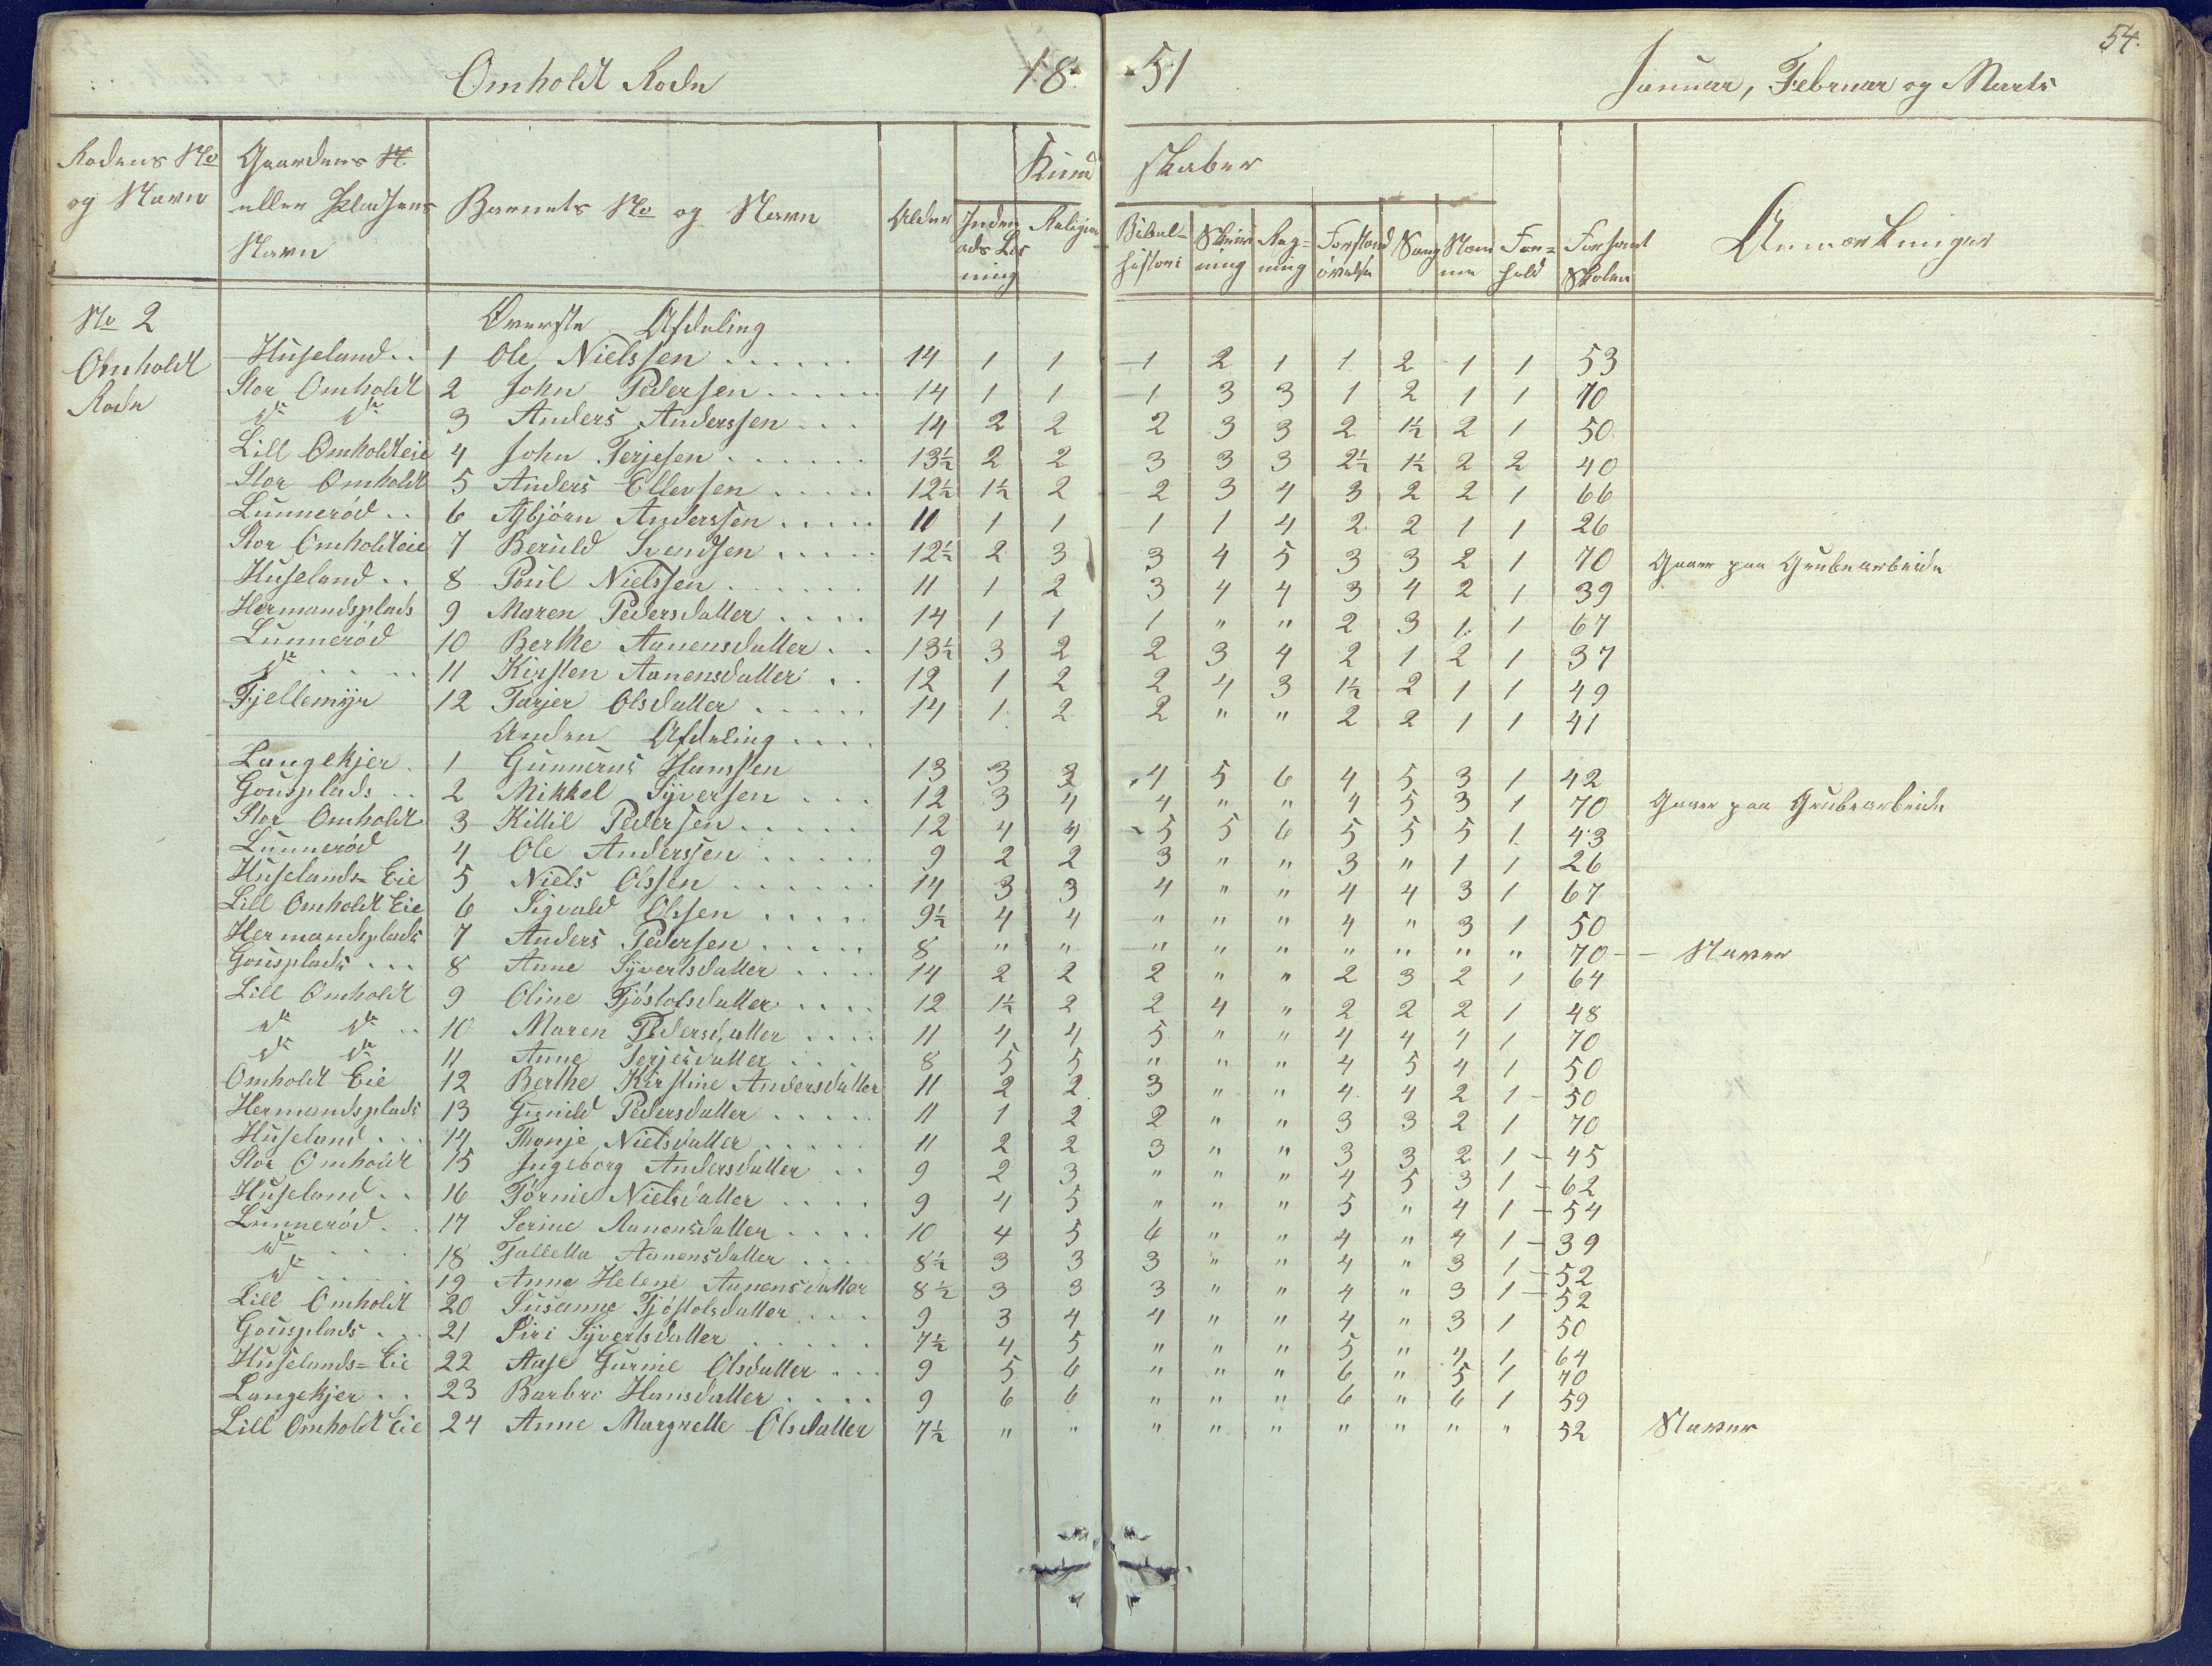 54.
Omholdt Rode 18 51 Januar, Februar og Marts
Rodens No og Navn | Gaardens N. eller Pladsens Navn | Barnets No og Navn | Alder | Kundskaber | Forhold | Forsømt Skolen | Anmærkninger
Inden ads Læsning | Religion | Bibelhistori | Skrivning | Regning | Forstandsøvelse | Sang | Nemme
No 2
Omholdt
Rode
Øverste Afdeling
Huseland.. 1 Ole Nielssen 14 1 1 1 2 1 1 2 1 1 53
Stor Omholdt 2 John Pedersen 14 1 1 1 3 3 1 2 1 1 70
do do 3 Anders Anderssen 14 2 2 2 3 3 2 1½ 2 1 50
Lill Omholdteie 4 John Terjesen 13½ 2 2 3 3 3 2½ 1½ 2 2 40
Stor Omholdt 5 Anders Ellevsen 12½ 1½ 2 2 3 4 3 2 2 1 66
Lunnerød.. 6 Asbjörn Anderssen 11 1 1 1 1 4 2 2 1 1 26
Stor Omholdteie 7 Beruld Svendsen 12½ 2 3 3 4 5 3 3 2 1 70 Gaaer paa Grubearbeide
Huseland.. 8 Poul Nielssen 11 1 2 3 4 4 3 4 2 1 39
Hermandsplads 9 Maren Pedersdatter 14 1 1 1 " " 2 3 1 1 67
Lunnerød 10 Berthe Aanensdatter 13½ 3 2 2 3 4 2 1 2 1 37
do 11 Kirsten Aanensdatter 12 1 2 2 4 3 1½ 2 1 1 49
Fjellemyr 12 Tarjer Olsdatter 14 1 2 2 " " 2 2 1 1 41
Anden Afdeling
Langekjer. 1 Gunnerus Hanssen 13 3 3 4 5 6 4 5 3 1 42
Gousplads.. 2 Mikkel Syversen 12 3 4 4 " " 4 5 3 1 70 Gaaer paa Grubearbeide
Stor Omholdt 3 Killil Pedersen 12 4 4 5 5 6 5 5 5 1 43
Lunnerød 4 Ole Anderssen 9 2 2 3 " " 3 " 1 1 26
Huselands=Eie 5 Niels Olssen 14 3 3 4 " " 4 4 3 1 67
Lill Omholdt Eie 6 Sigvald Olssen 9½ 4 4 " " " 4 " 3 1 50
Hermandsplads 7 Anders Pedersen 8 " " " " " " " " " 70 - Naver
Gousplads... 8 Anne Syvertsdatter 14 2 2 2 " " 2 3 2 1 64
Lill Omholdt 9 Oline Tjöstolsdatter 12 1½ 2 2 4 " 2 2 2 1 48
do do.. 10 Maren Pedersdatter 11 4 4 5 " " 4 4 4 1 70
do do 11 Anne Terjesdatter 8 5 5 " " " 4 5 4 1 50
Omholdt Eie 12 Berthe Kirstine Andersdatter 11 2 2 3 " " 4 4 2 1 50
Hermandsplads 13 Gunild Pedersdatter 11 1 2 2 " " 3 3 2 1 70
Huseland... 14 Thonje Nielsdatter 11 2 2 3 " " 3 3 2 1 45
Stor Omholdt 15 Ingeborg Andersdatter 9 2 3 " " " 4 5 3 1 62
Huseland.. 16 Törnie Nielsdatter 9 4 5 " " " 5 " 4 1 54
Lunnerød. 17 Serine Aanensdatter 10 4 5 6 " " 4 " 4 1 39
do 18 Talletta Aanensdatter 8½ 3 3 3 " " 4 " 3 1 52
do 19 Anne Helene Aanensdatter 8½ 3 3 3 " " 4 " 3 1 52
Lill Omholdt 20 Susanne Tjöstolsdatter 9 3 4 4 " " 4 " 3 1 50
Gousplads.. 21 Siri Syvertsdatter 7½ 4 5 " " " 5 " 4 1 64
Huselands=Eie 22 Aase Gurine Olsdatter 9 5 6 " " " 6 " 5 1 70
Langekjer.. 23 Barbro Hansdatter 9 6 6 " " " 6 " 6 1 59
Lill Omholdt Eie 24 Anne Margrette Olsdatter 7½ " " " " " " " " " 52 Naver